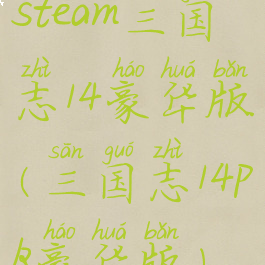 steam三国
zhì háo huá bǎn
志14豪华版
sān guó zhì
(三国志14p
háo huá bǎn
k豪华版)